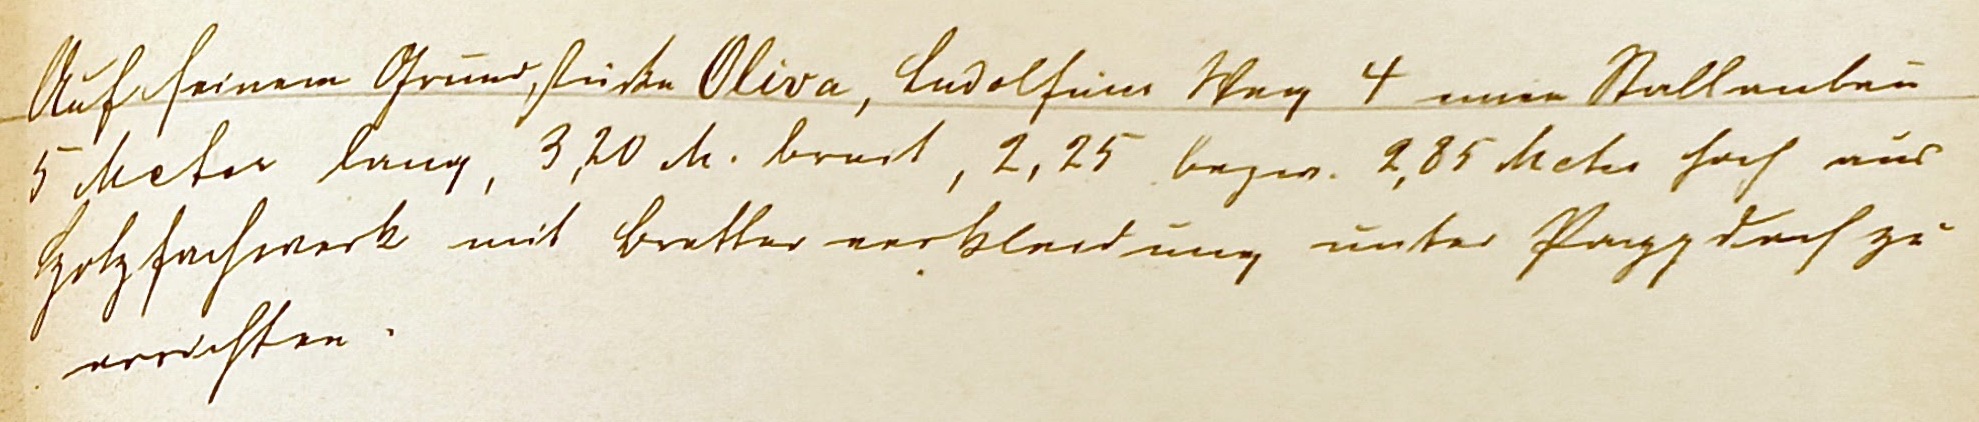 Auf seinem Grundstücke Oliva, Ludolfiner Weg 4 einen Stallanbau
5 Meter lang, 3,20 M. breit, 2,25 bezw. 2,85 Meter hoch aus
Holzfachwerk mit Bretterverkleidung unter Pappdach zu
errichten.